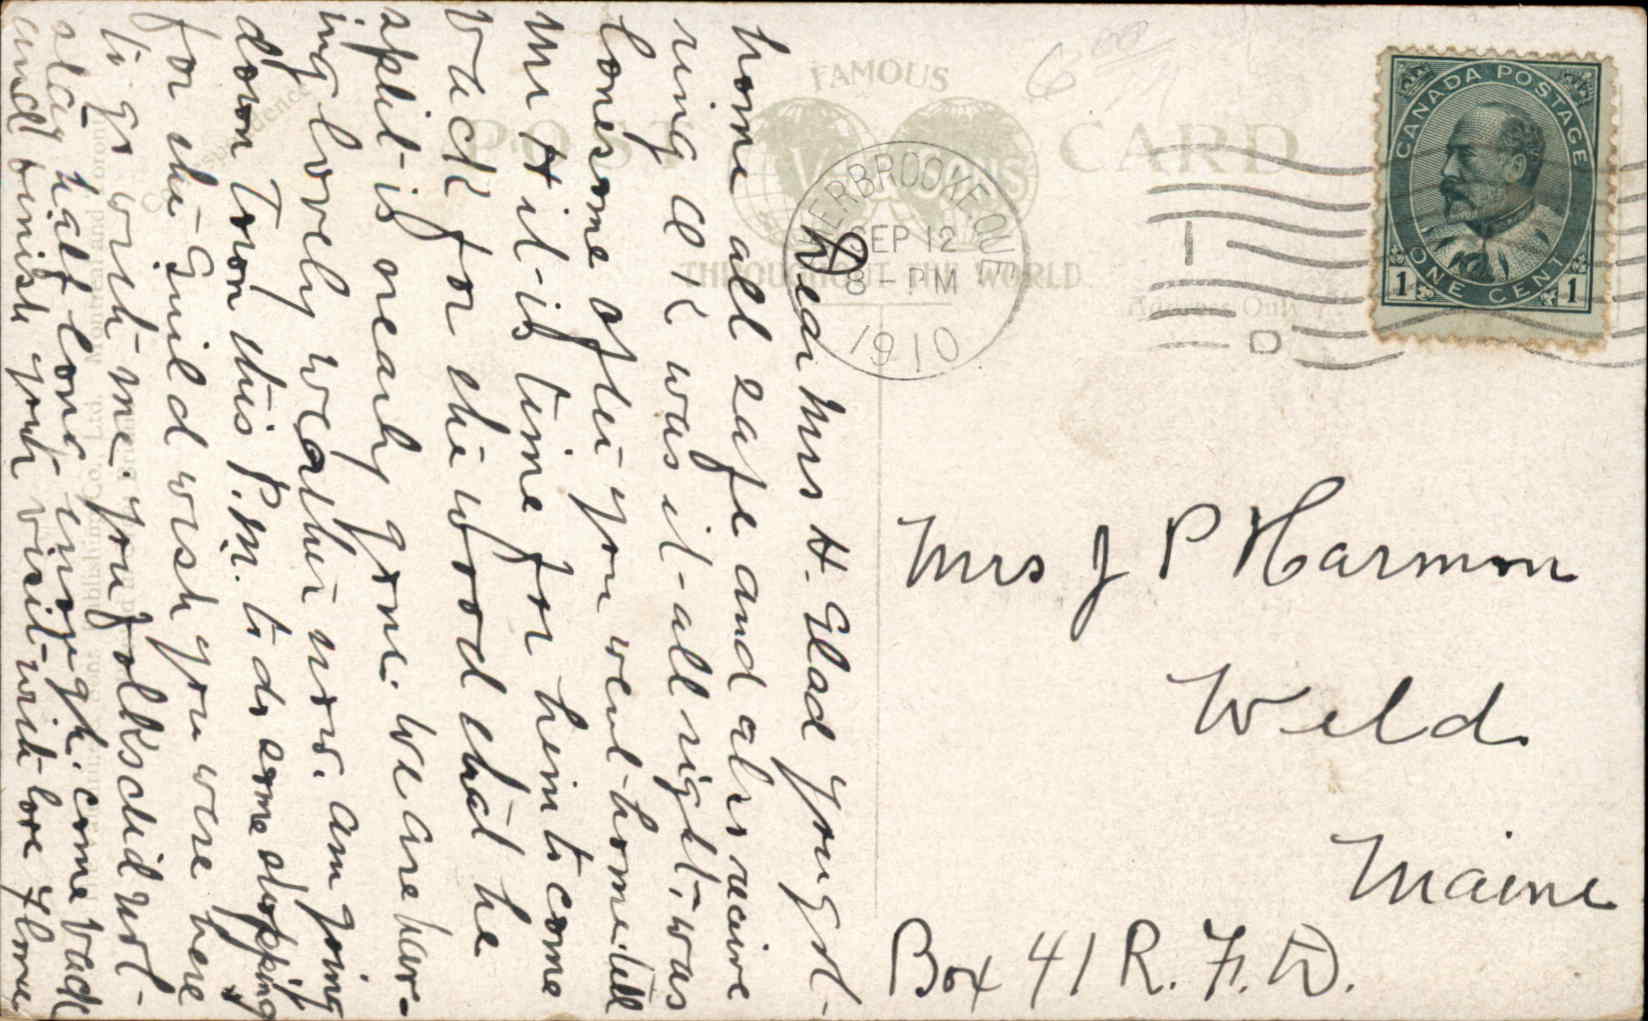 6 00
FAMOUS
POST CARD
VALENTINES
THROUGHOUT THE WORLD
SHERBROOKE, QUE.
SEP 12
8 - PM
1910
CANADA POSTAGE
1 ONE CENT 1
Address Only
Dear Mrs H. Glad you got
home all safe and also receive
ring all K was it all right. was
lonesome after you went home. tell
Mr H it is time for him to come
back for the wood that he
split is nearly gone. we are hav-
ing lovely weather now. am going
down town this P.M. to do some shopping
for the Guild wish you were here
to go with me. you folks did not
stay half long enough. come back
and finish your visit write love Flora
Mrs J P Harmon
Weld
Maine
Box 41 R. F. D.